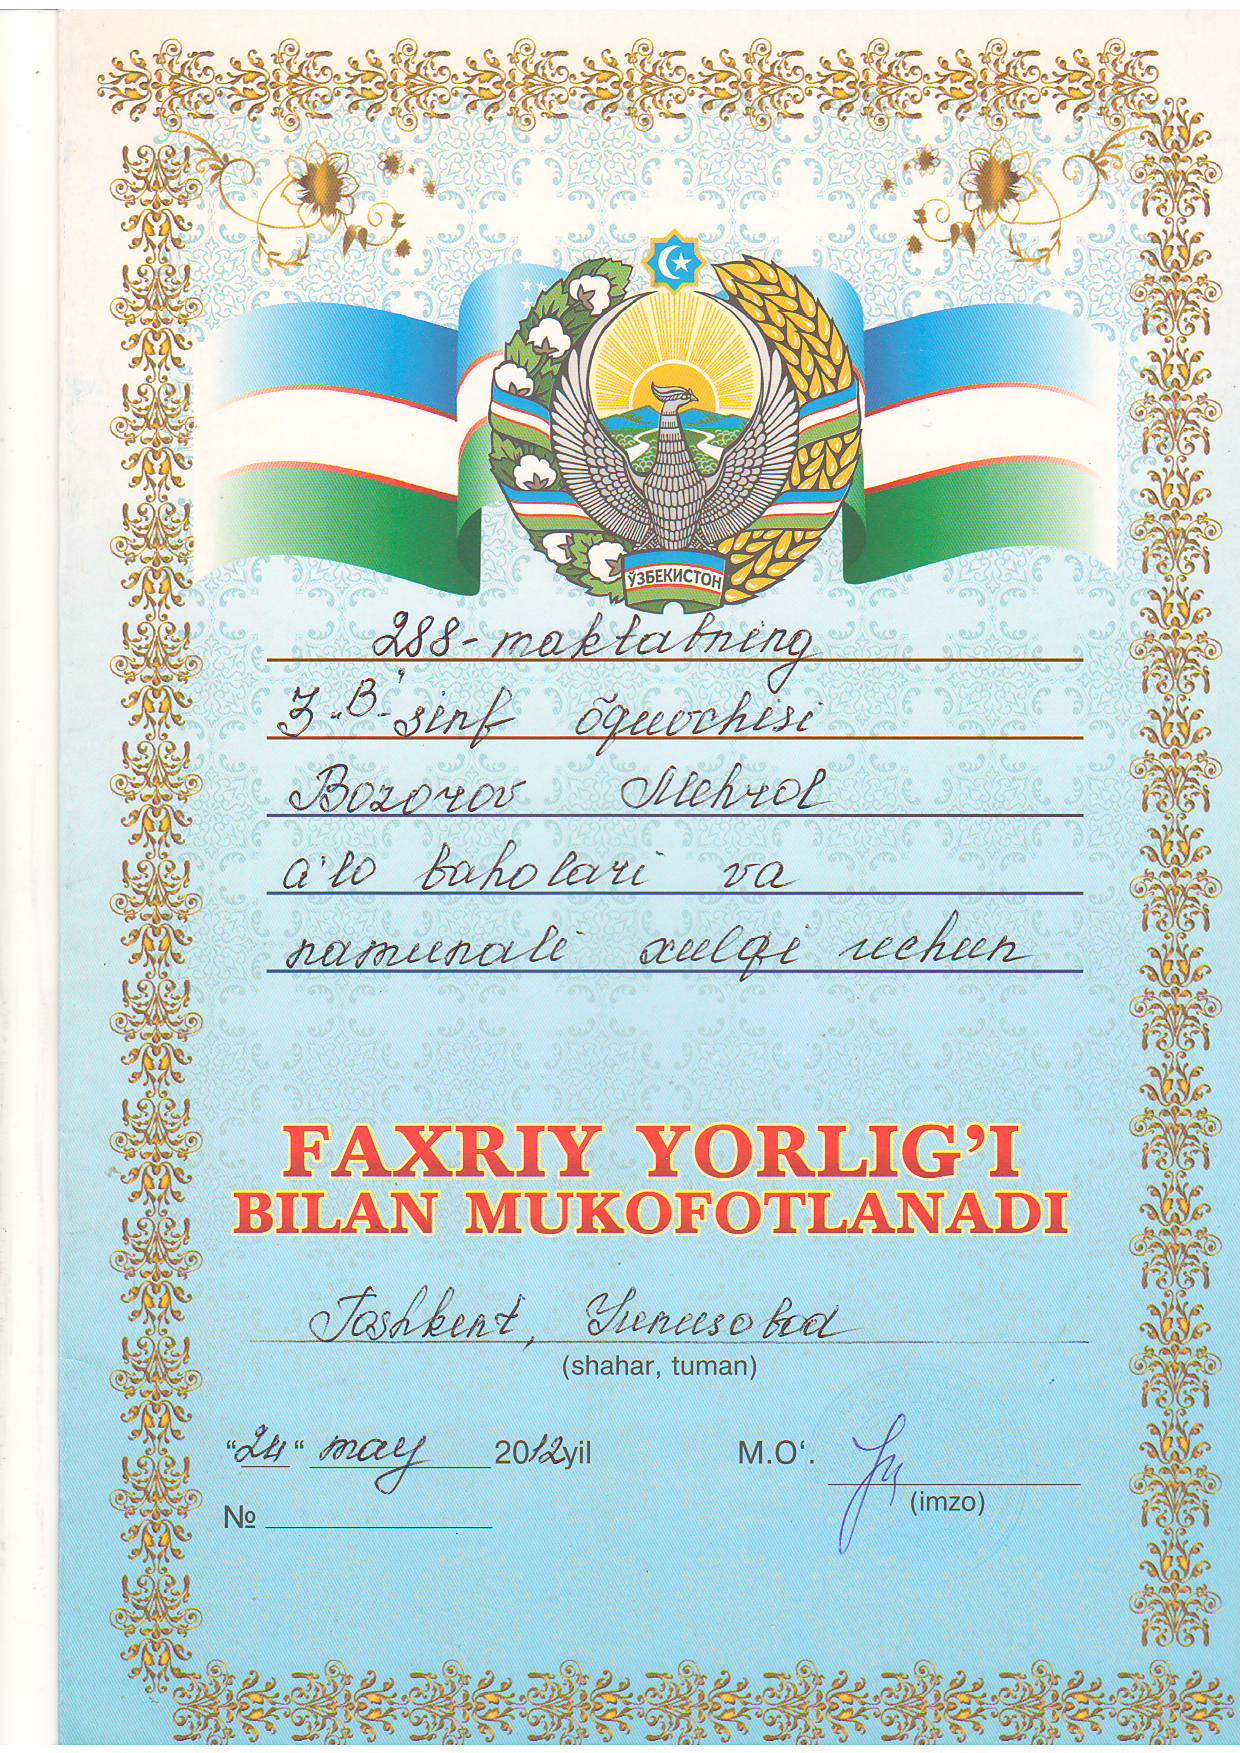 ЎЗБЕКИСТОН
288-maktabning
3-„B“-sinf õquvchisi
Bozorov Mehrol
a'lo baholari va
namunali xulqi uchun
FAXRIY YORLIG’I
BILAN MUKOFOTLANADI
Toshkent, Yunusobod
(shahar, tuman)
“24“ may 2012yil M.O‘.
(imzo)
№